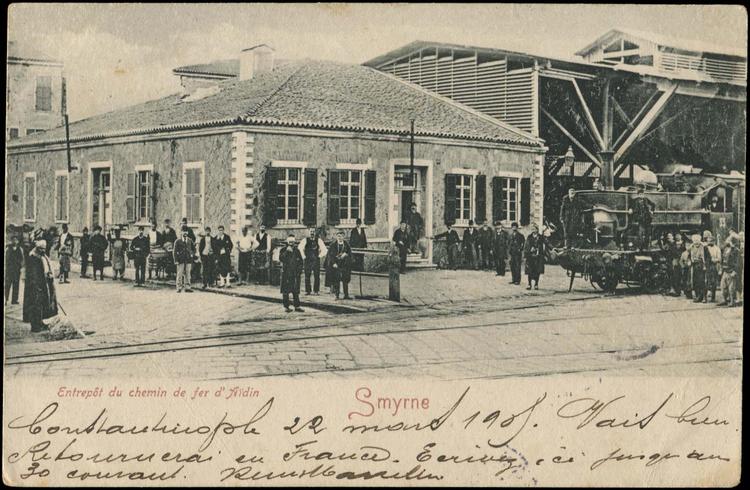 Entrepôt du chemin de fer d'Aïdin
Smyrne
Constantinople 22 mars 1905. Vais bien.
Retournerai en France. Ecrivez ici jusqu'au
30 courant.